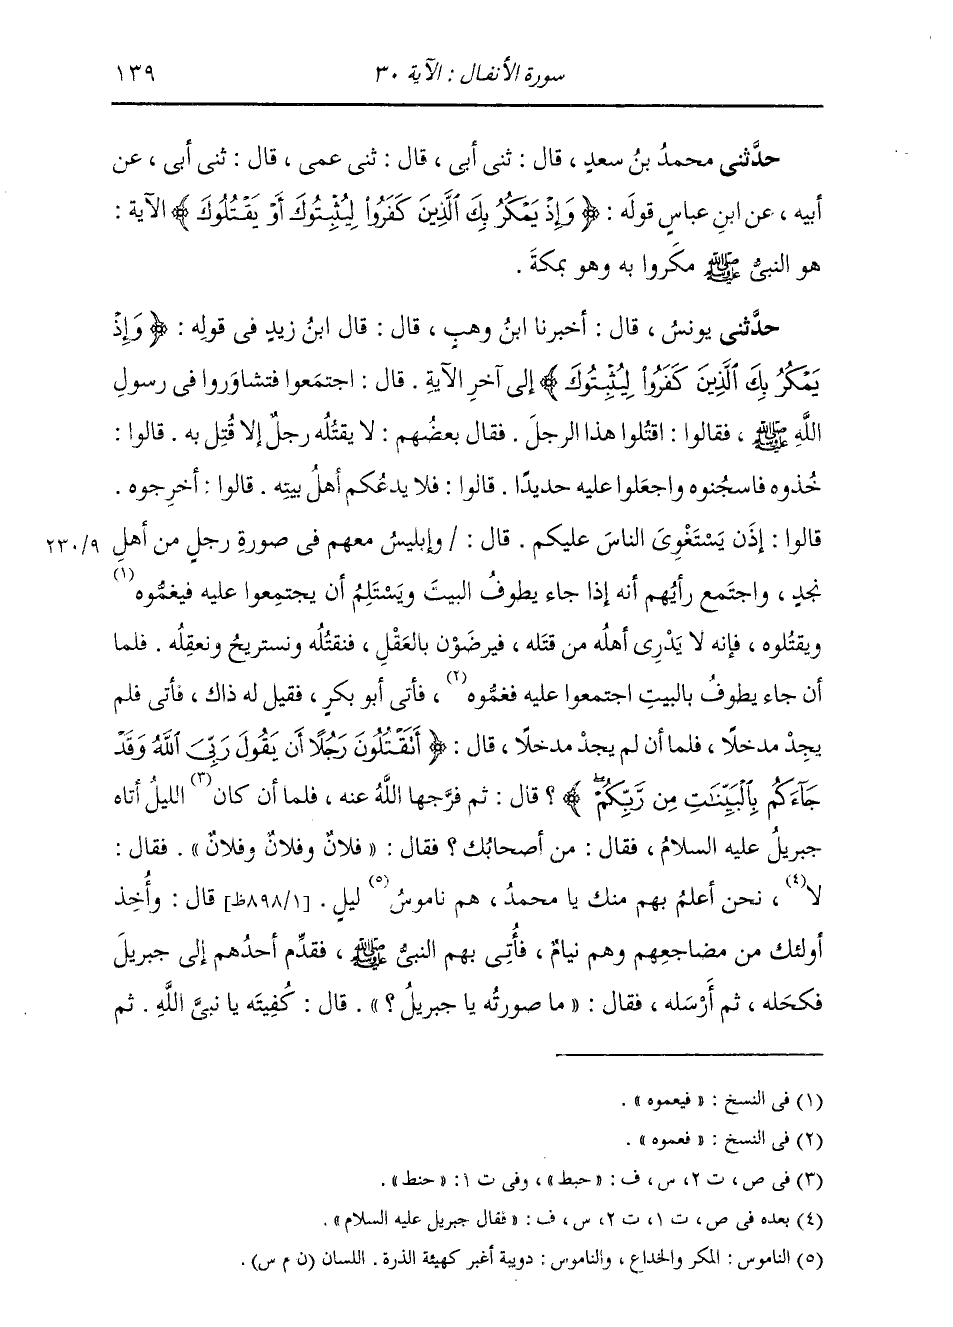 سورة الأنفال : الآية ٣٠ ١٣٩
حدَّثنى محمدُ بنُ سعدٍ ، قال : ثنى أبى ، قال : ثنى عمى ، قال : ثنى أبى ، عن
أبيه ، عن ابنِ عباسٍ قولَه : ﴿ وَإِذْ يَمْكُرُ بِكَ الَّذِينَ كَفَرُوا لِيُثْبِتُوكَ أَوْ يَقْتُلُوكَ ﴾ الآية :
هو النبىُّ ﷺ مكَروا به وهو بمكةَ .
حدَّثنى يونسُ ، قال : أخبرنا ابنُ وهبٍ ، قال : قال ابنُ زيدٍ فى قولِه : ﴿ وَإِذْ
يَمْكُرُ بِكَ الَّذِينَ كَفَرُوا لِيُثْبِتُوكَ ﴾ إلى آخرِ الآيةِ . قال : اجتمَعوا فتشاوَروا فى رسولِ
اللَّهِ ﷺ ، فقالوا : اقتُلوا هذا الرجلَ . فقال بعضُهم : لا يقتُلُه رجلٌ إلا قُتِل به . قالوا :
خُذوه فاسجُنوه واجعَلوا عليه حديدًا . قالوا : فلا يدعُكم أهلُ بيتِه . قالوا : أخرِجوه .
قالوا : إذَن يَسْتَغْوِىَ الناسَ عليكم . قال : / وإبليسُ معهم فى صورةِ رجلٍ من أهلِ ٢٣٠/٩
نجدٍ ، واجتمَع رأيُهم أنه إذا جاء يطوفُ البيتَ ويَسْتَلِمُ أن يجتمِعوا عليه فيغمُّوه (١)
ويقتُلوه ، فإنه لا يَدْرِى أهلُه من قتَله ، فيرضَوْن بالعَقْلِ ، فنقتُلُه ونستريحُ ونعقِلُه . فلما
أن جاء يطوفُ بالبيتِ اجتمعوا عليه فغمُّوه (٢) ، فأتى أبو بكرٍ ، فقيل له ذاك ، فأتى فلم
يجِدْ مدخلًا ، فلما أن لم يجدْ مدخلًا ، قال : ﴿ أَتَقْتُلُونَ رَجُلًا أَن يَقُولَ رَبِّىَ اللَّهُ وَقَدْ
جَآءَكُم بِالْبَيِّنَٰتِ مِن رَّبِّكُمْ ﴾ ؟ قال : ثم فرَّجها اللَّهُ عنه ، فلما أن كان (٣) الليلُ أتاه
جبريلُ عليه السلامُ ، فقال : من أصحابُك ؟ فقال : « فلانٌ وفلانٌ وفلانٌ » . فقال :
لا (٤) ، نحن أعلمُ بهم منك يا محمدُ ، هم ناموسُ (٥) ليلٍ . [٨٩٨/١ظ] قال : وأُخِذ
أولئك من مضاجعِهم وهم نيامٌ ، فأُتِى بهم النبىُّ ﷺ ، فقدِّم أحدُهم إلى جبريلَ
فكحَله ، ثم أَرْسَله ، فقال : « ما صورتُه يا جبريلُ ؟ » . قال : كُفِيتَه يا نبىَّ اللَّهِ . ثم
(١) فى النسخ : « فيعموه » .
(٢) فى النسخ : « فعموه » .
(٣) فى ص ، ت ٢، س ، ف : « حبط » ، وفى ت ١: « حنط » .
(٤) بعده فى ص ، ت ١، ت ٢، س ، ف : « فقال جبريل عليه السلام » .
(٥) الناموس : المكر والخداع ، والناموس : دويبة أغبر كهيئة الذرة . اللسان (ن م س) .